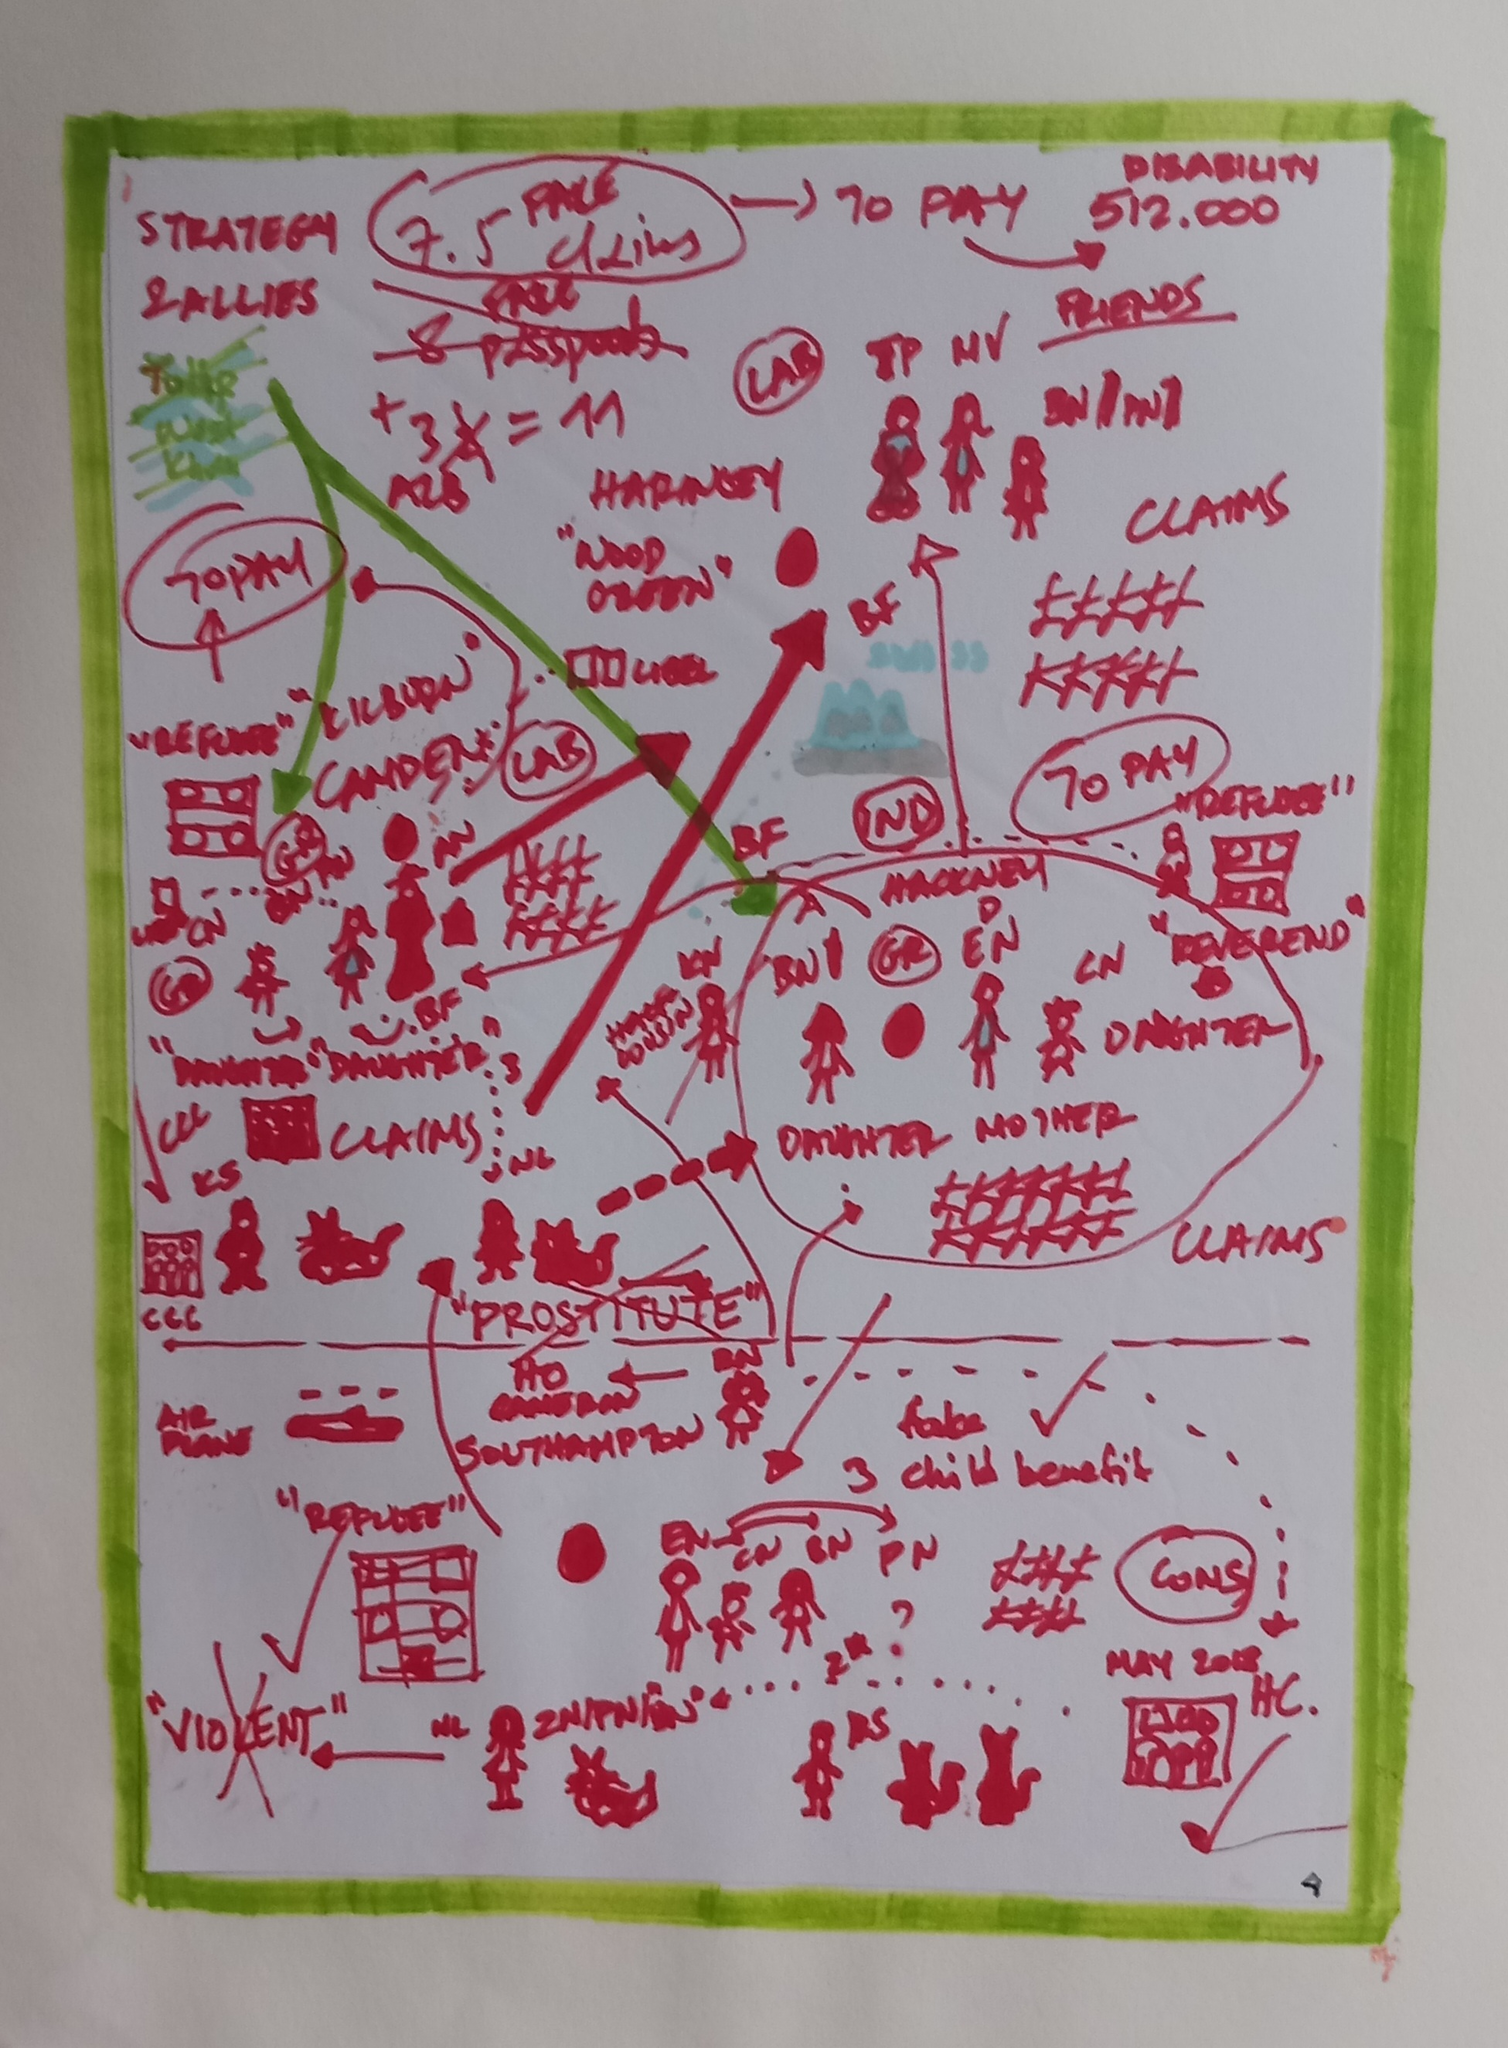 STRATEGY
& ALLIES
7.5 FAKE
claims
TO PAY
DISABILITY
512.000
FAKE
8 passports
+3 = 11
LAB
TP MV
FRIENDS
HARINGEY
"WOOD
GREEN"
CLAIMS
BF
£££££
£££££
TO PAY
LABEL
"REFUGEE"
KILBURN
CAMDEN
LAB
SWISS
TO PAY
IND
"REFUGEE"
AN
££££
££££
BF
HACKNEY
GR
CN
GR
BF
KN
HALF
COUSIN
BN
GR
EN
CN
"REVEREND"
"DAUGHTER"
DAUGHTER"
DAUGHTER
CCC
CLAIMS
KS
NL
DAUGHTER MOTHER
CLAIMS
CCC
"PROSTITUTE"
AIR
PLANE
HO
CAMERON
SOUTHAMPTON
BN
fake
3 child benefit
"REFUGEE"
EN CN BN PN
?
££££
££££
CONS
"VIOLENT"
NL
2N/PN/BN"
2*
KS
MAY 2018
HC.